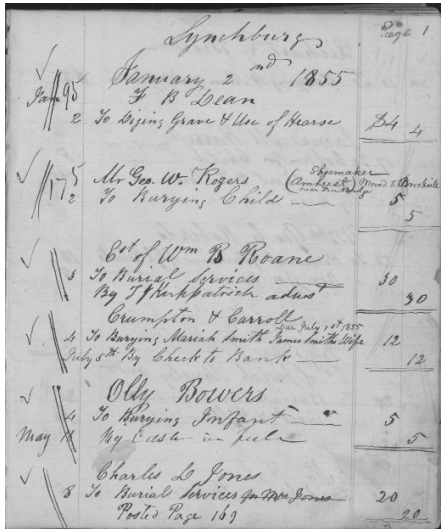 Page 1
Lynchburg
January 2nd 1855
Jan 95 F B Dean
2 To Diging Grave & Use of Hearse $4 4
175 Mr Geo. W. Rogers (Shoemaker Amherst near Bridge) Moved to Brookville
2 To Burying Child 5
5
Est of Wm B Roane
3 To Burial Services 30
By T J Kirkpatrick admst 30
Crumpton & Carroll
Due July 1st 1855
4 To Burying Mariah Smith James Smiths Wife 12
July 5th By Check to Bank 12
Olly Bowers
4 To Burying Infant 5
May By Cash in full 5
Charles L Jones
8 To Burial Services for Mrs Jones 20
Posted Page 169 20